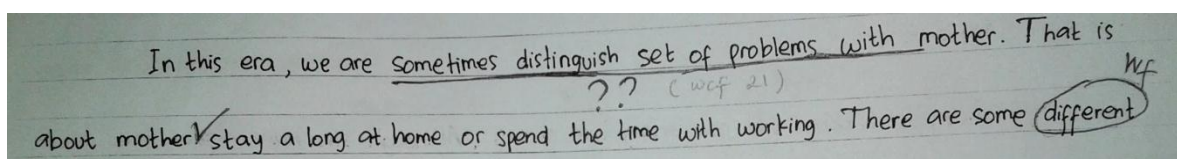 In this era, we are sometimes distinguish set of problems with mother. That is
?? (wcf 21)
Wf
about mother stay a long at home or spend the time with working. There are some different